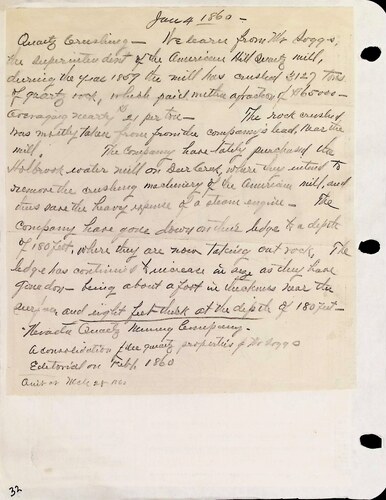 Jan 4 1860 -
Quartz Crushing - We learn from Mr Soggs
the superintendent of the American Hill Quartz mill,
during the year 1859 the mill has crushed 3127 tons
of quartz rock, which paid within a fraction of $65000 -
averaging nearly $21 per ton - The rock crushed
was mostly taken from from the company's lead near the
mill. The Company have lately purchased the
Holbrook water mill on Deer Creek, where they intend to
remove the crushing machinery of the American mill, and
thus save the heavy expense of a steam engine - The
company have gone down on their ledge to a depth
of 180 feet, where they are now taking out rock, The
ledge has continued to increase in size as they have
gone down - being about a foot in thickness near the
surface and eight feet thick at the depth of 180 feet -
- Nevada Quartz Mining Company -
A consolidation of the quartz properties of Mr Soggs
Editorial on Feb 1 1860
32